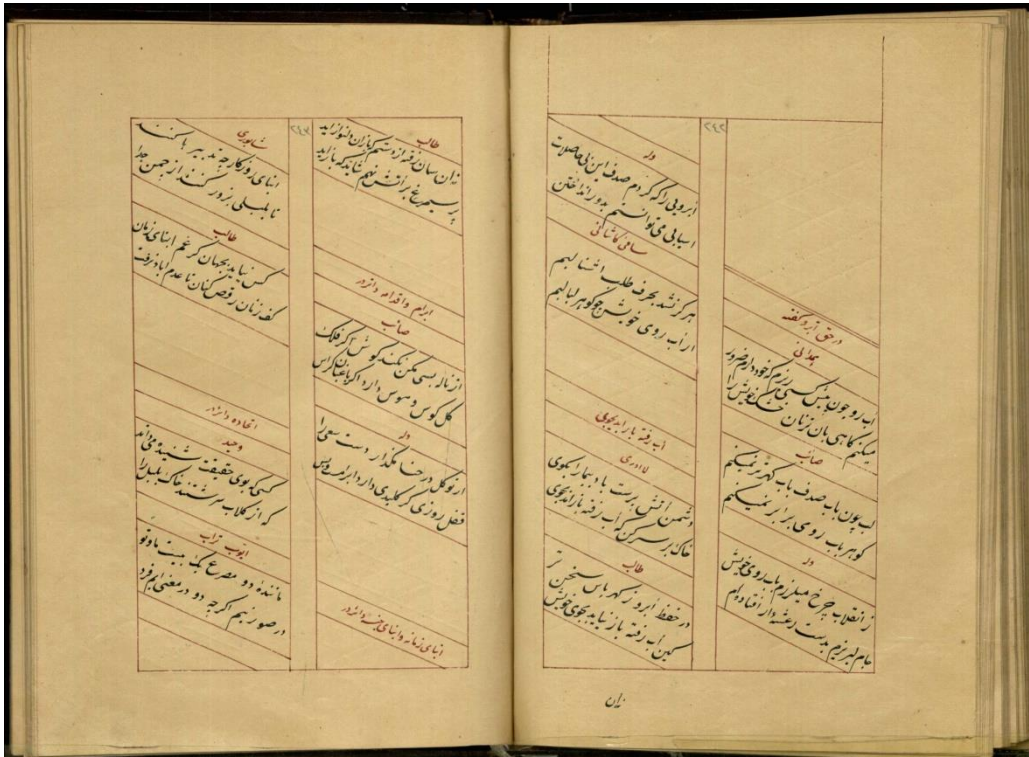 ۲۴۲
در حق ابرو گفته
همدانی
اب رو چون پیش کسی ریزم که خود دارم ضرور
میکنم کاهی بان تر نان خشک خویش را
صائب
لب چون باب صدف باب کهر تر نمیکنم
کوهر باب روی برابر نمیکنم
وله
ز انقلاب چرخ میلرزم باب روی خویش
جام لبریزم بدست رعشه دار افتاده ام
وله
ابرویی را که کردم صدف این بی حاصلات
اسیایی می توانستم بدور انداختن
کاشانی
هرکز نشد بحرف طلب اشنا لبم
از اب روی خویش چو کوهر لبالبم
اب رفته باز اید بجوی
لا ادری
دشمن اتش پرست باد پیما را بکوی
خاک بر سر کن که اب رفته باز اید بجوی
طالب
در حفظ ابرو ز کهر باش سخت تر
کین اب رفته باز نیاید بجوی خویش
زان
۲۴۳
طالب
زان سان رفته از دستم که یاران دلنواز اید
پر سیمرغ بر اتش نهم شاید که باز اید
ابرام و اقدام دانزدر
صائب
از ناله بسی مکن نکند کوش اکر فلک
کل کوش و هوش دارد اکر باغبان کراس
وله
از توکل در حنا مکذار دست سعی را
قفل روزی کر کلیدی دارد ابرامست و بس
ابنای زمانه و ابنای جنس دانزدر
شاپوری
ابنای روزکار چه تدبیر ها کنند
تا بلبلی بزور کنند از چمن جدا
طالب
کس نیاید بجهان کز غم ابنای زمان
کف زنان رقص کنان تا عدم اباد نرفت
اتحاده دانزدر
وحید
کسی که بوی حقیقت شنید میداند
که از کلاب سرشتند خاک بلبل را
ابو تراب
ماننده دو مصرع یک بیت ما و تو
در صورتیم اکر چه دو در معنی ایم فرد